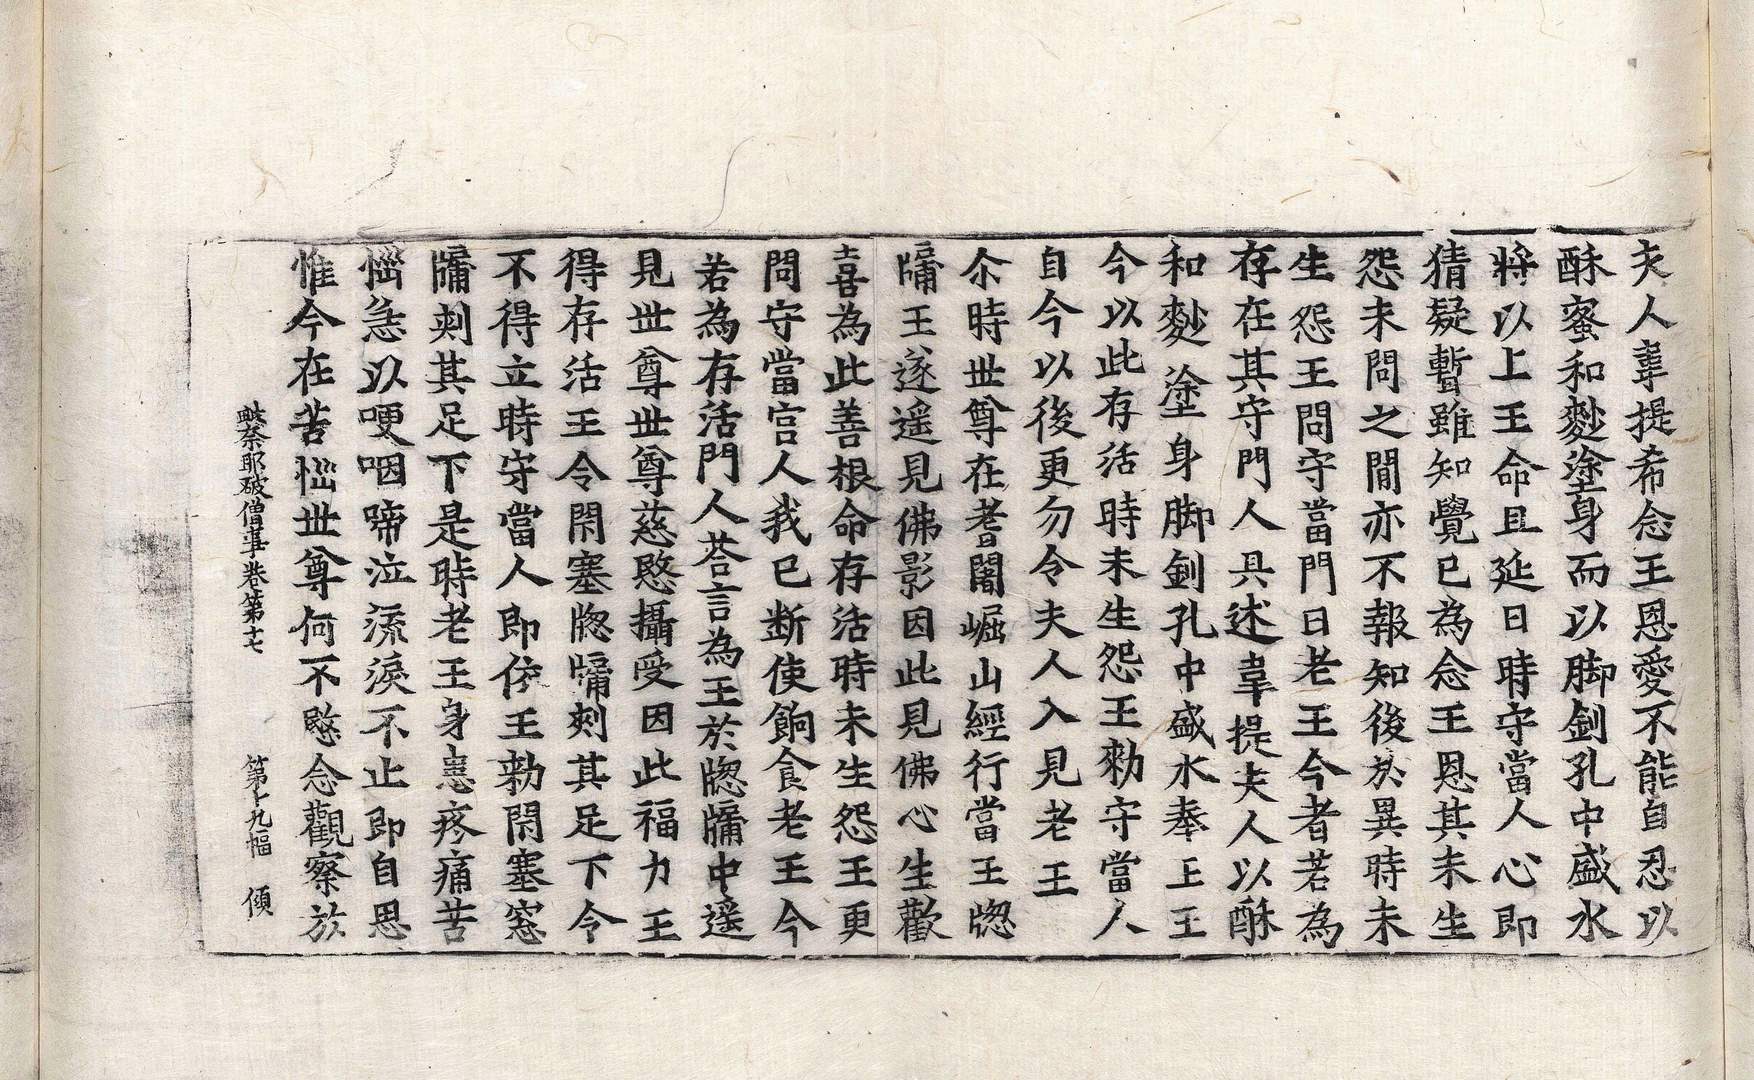 夫人韋提希念王恩愛不能自忍以
酥蜜和麨塗身而以脚釧孔中盛水
將以上王命且延日時守當人心即
猜疑暫雖知覺已為念王恩其未生
怨未問之間亦不報知後於異時未
生怨王問守當門曰老王今者若為
存在其守門人具述韋提夫人以酥
和麨塗身脚釧孔中盛水奉上王
今以此存活時未生怨王勑守當人
自今以後更勿令夫人入見老王
尒時世尊在耆闍崛山經行當王牎
牖王遂遥見佛影因此見佛心生歡
喜為此善根命存活時未生怨王更
問守當宫人我已断使餉食老王今
若為存活門人荅言為王於牎牖中遥
見世尊世尊慈愍攝受因此福力王
得存活王令閇塞牎牖刾其足下令
不得立時守當人即依王勑閇塞窓
牖刾其足下是時老王身患疼痛苦
惱急以哽咽啼泣流淚不止即自思
惟今在苦惱世尊何不愍念觀察於
䤈奈耶破僧事卷第十七 第十九幅 傾